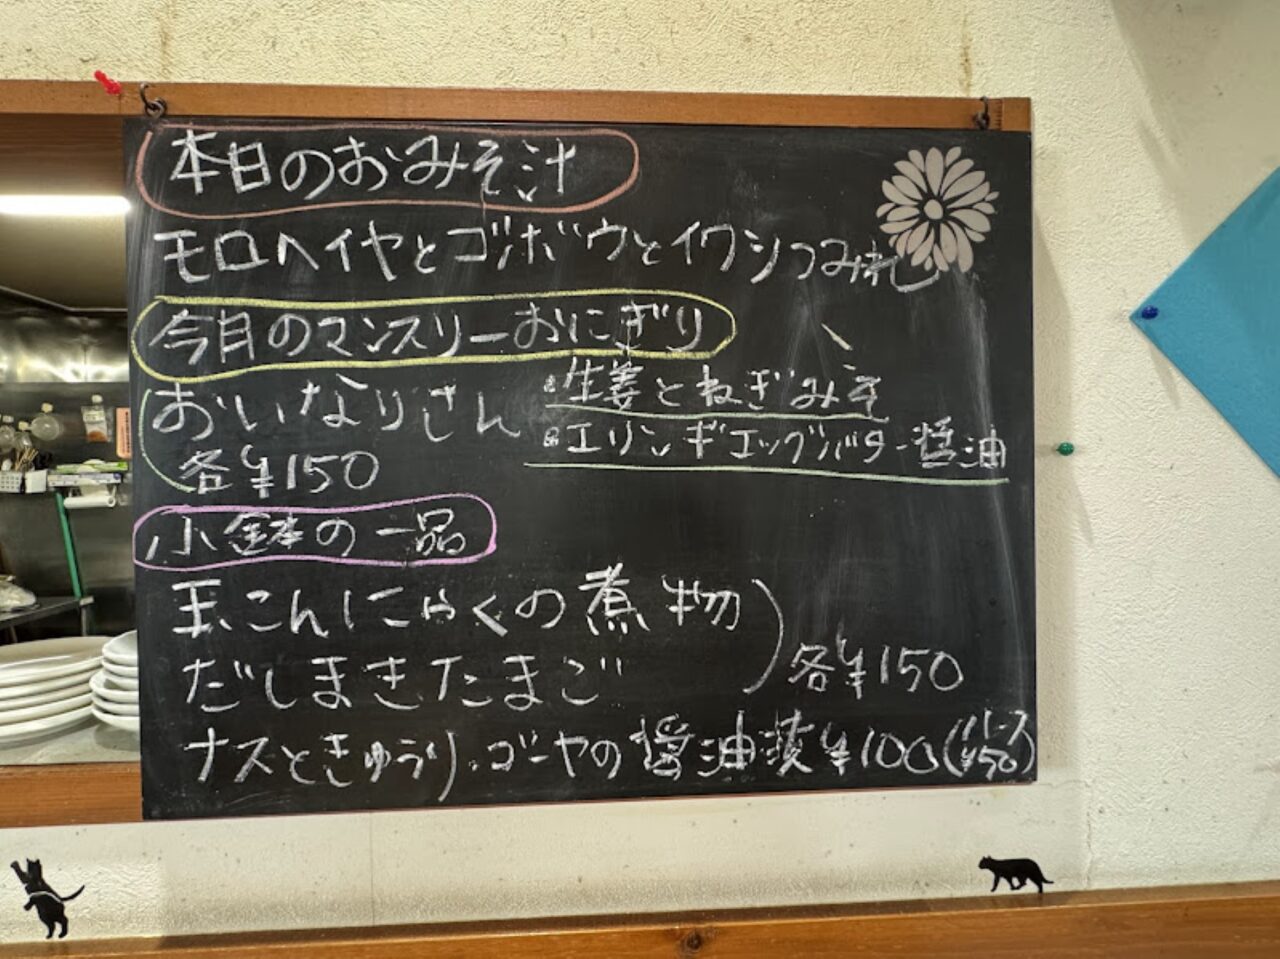 本日のおみそ汁
モロヘイヤとゴボウとイワシつみれ
今月のマンスリーおにぎり
おいなりさん
生姜とねぎみそ
エリンギエッグバター醤油
各¥150
小鉢の一品
玉こんにゃくの煮物
だしまきたまご
各¥150
ナスときゅうり、ゴーヤの醤油漬¥100(ハーフ¥50)